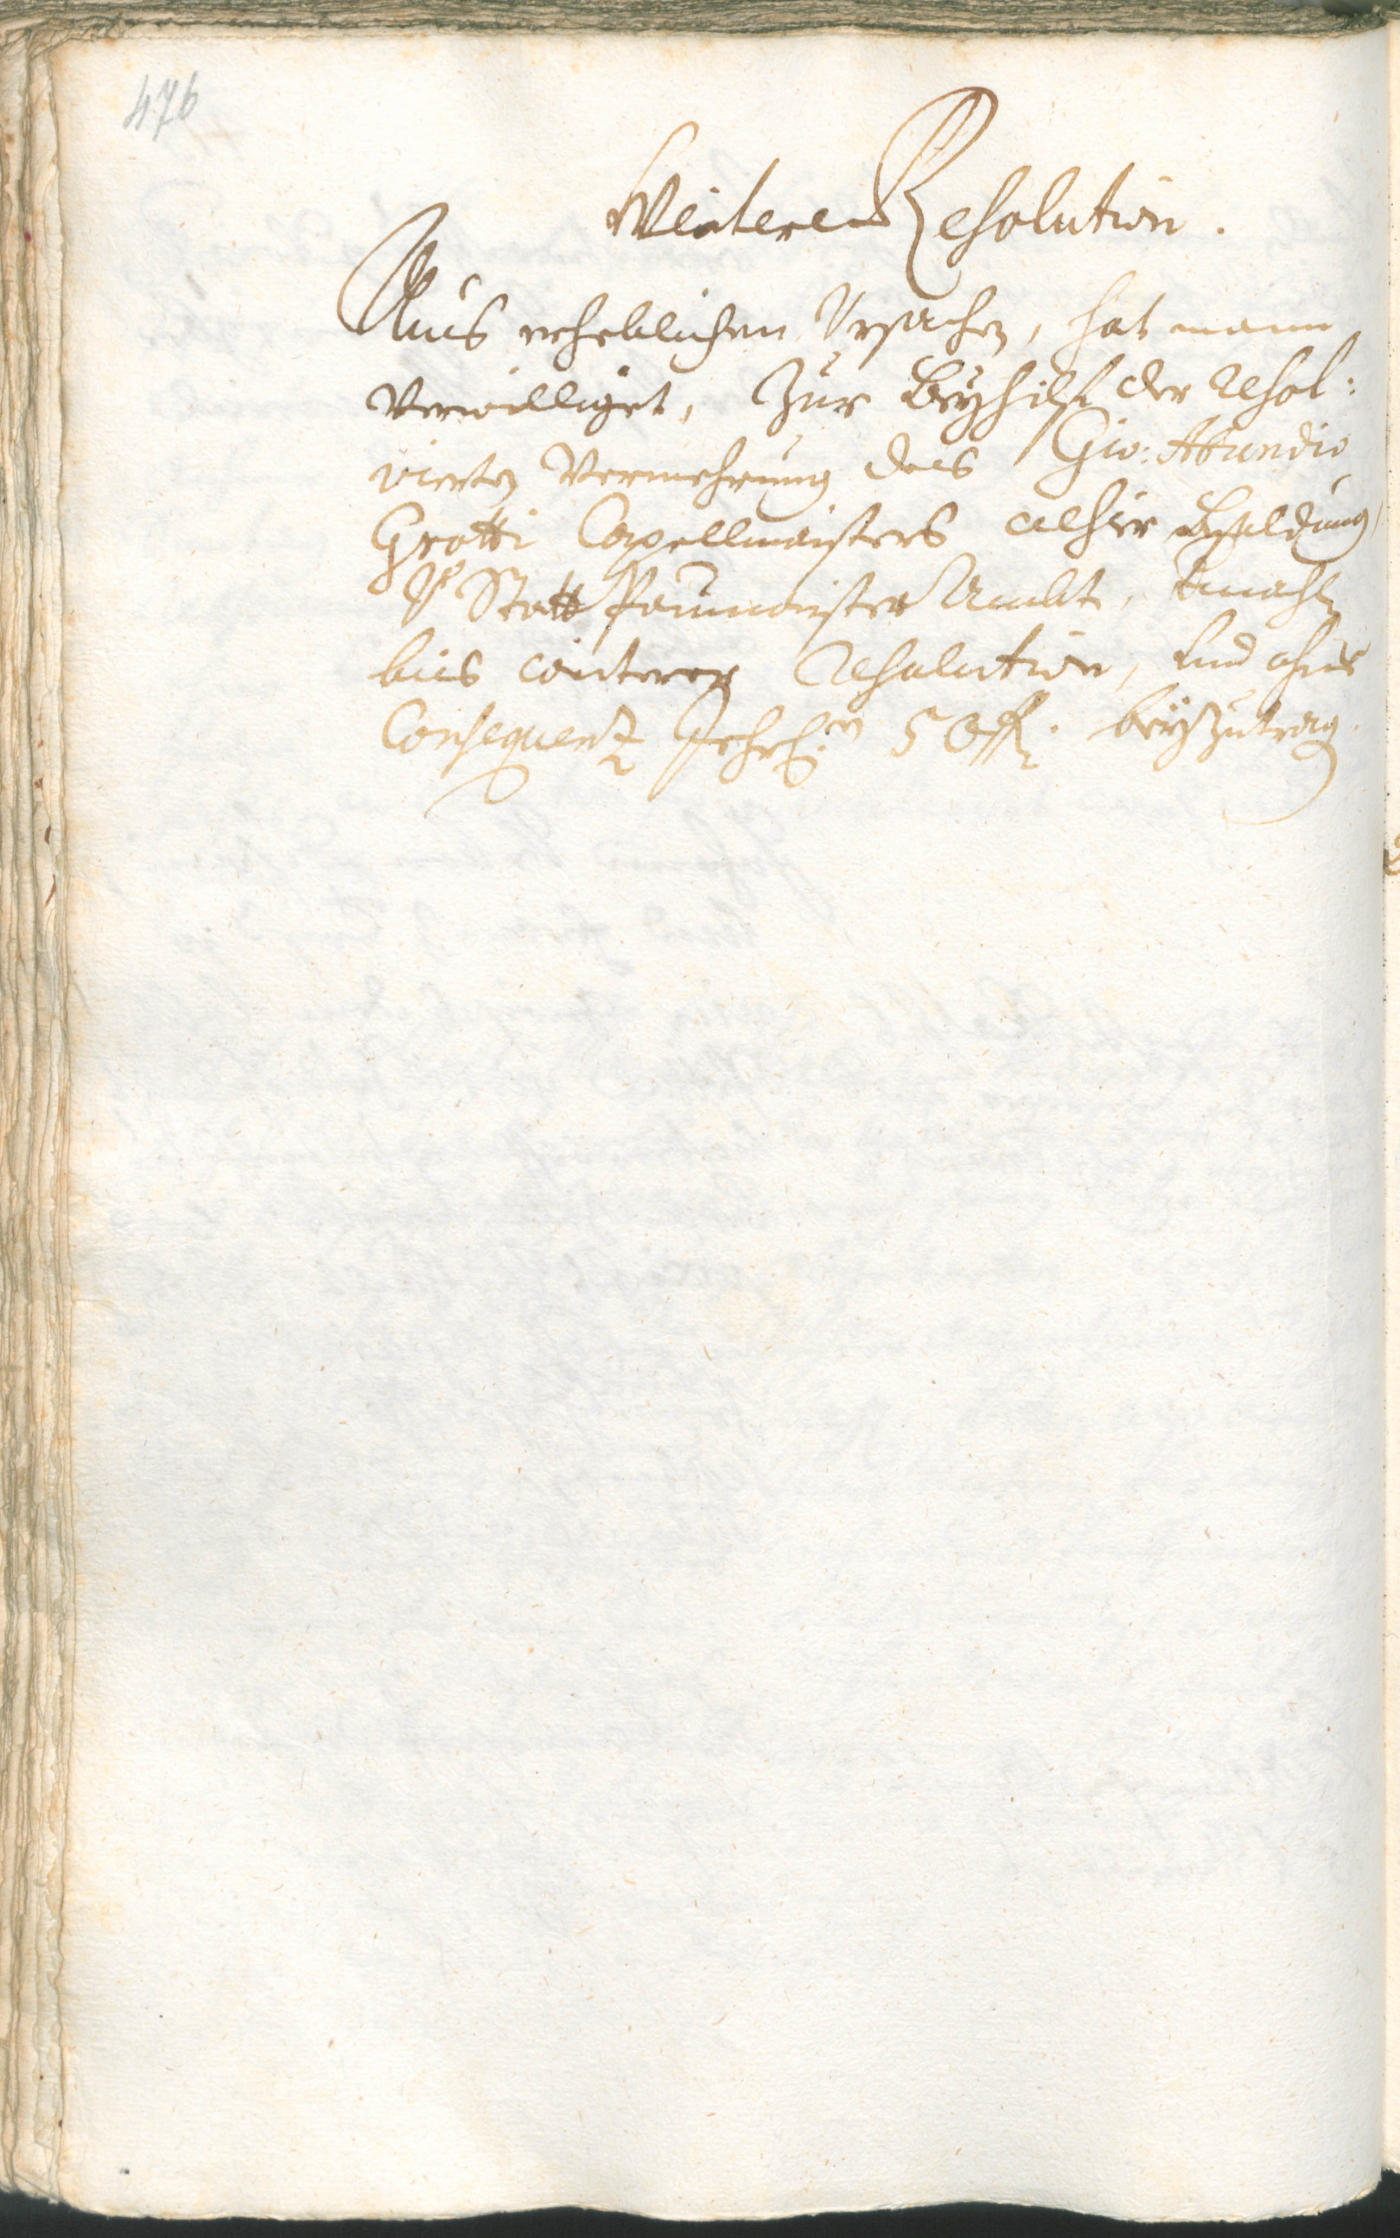 476
Weiteren Resolution.
Aus erheblichen Ursachen, hat mann
verwilliget, Zur Beyhilf der resol:
vierten Vermehrung des Gio: Abundio
Grotti Capellmaisters alhier Besoldung,
Stattpaumaister Ambt,
bis weiterer Resolution, und ohne
Consequenz 50 fl. beyzutrag.